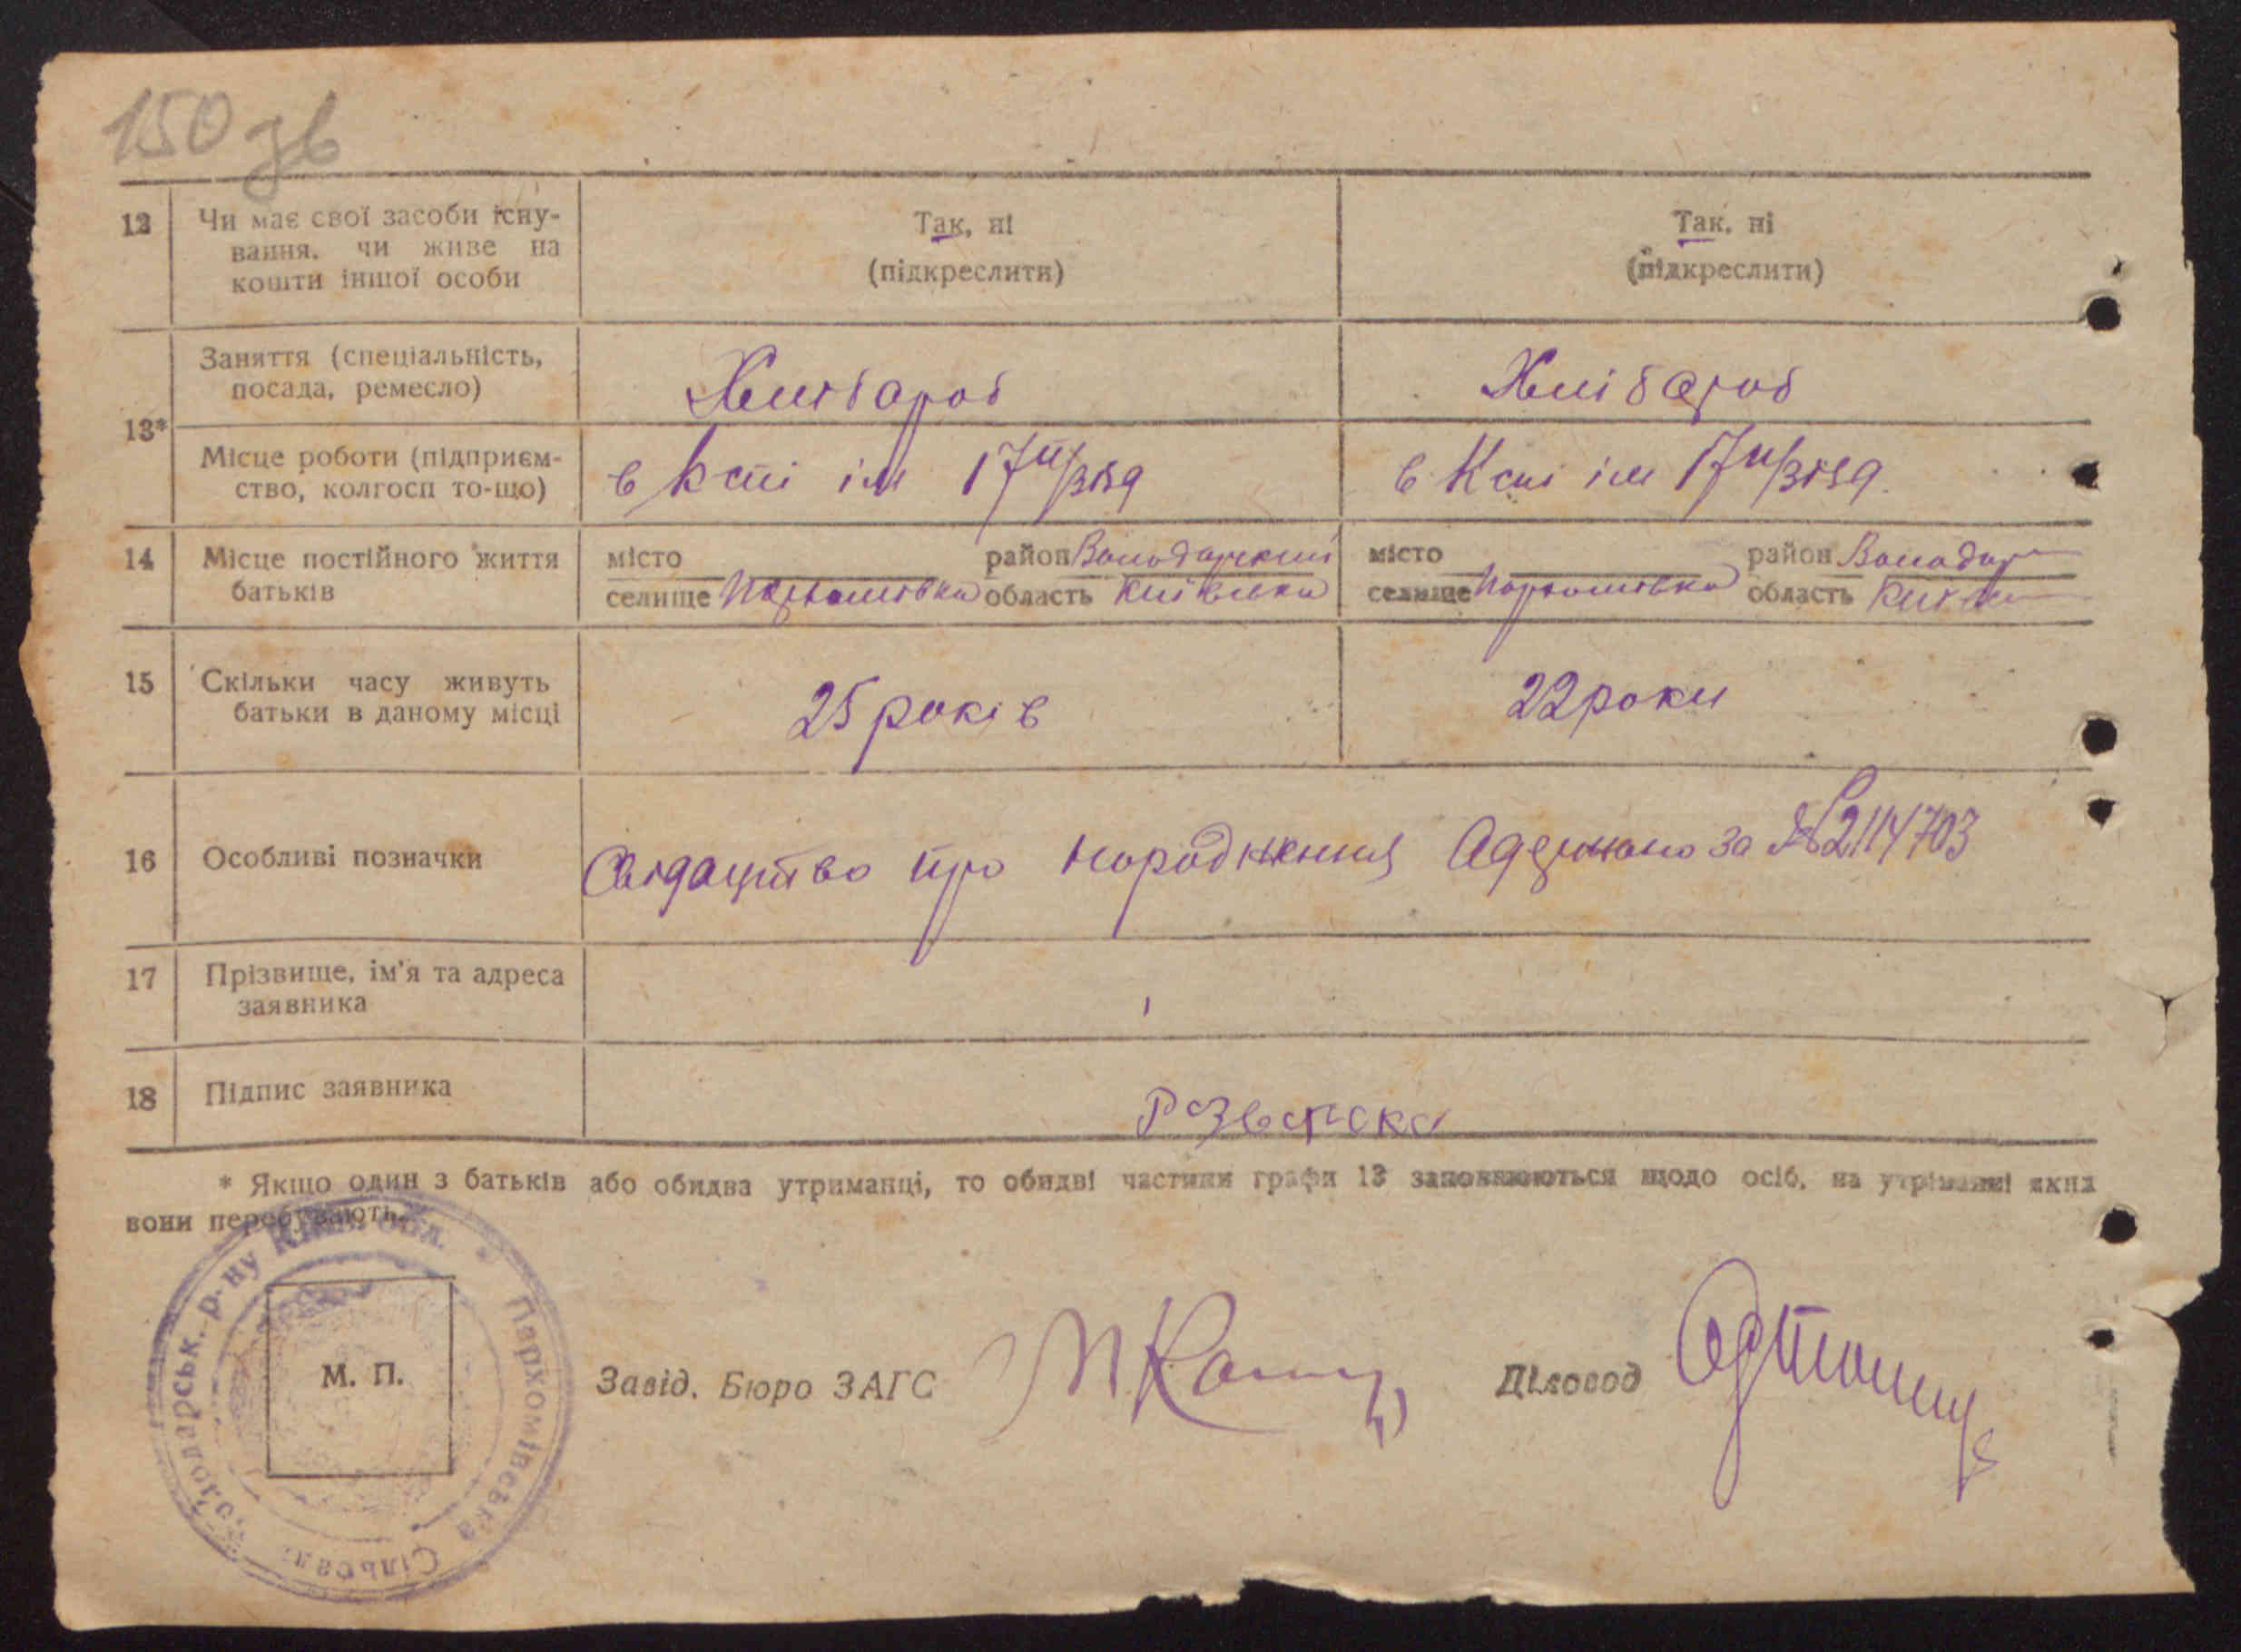 150 зв
12 Чи має свої засоби існу- Так, ні Так, ні
вання, чи живе на
кошти іншої особи (підкреслити) (підкреслити)
Заняття (спеціальність,
посада, ремесло) Хлібароб Хлібароб
13*
Місце роботи (підприєм- в Кспі ім 17 п/зїзда в Кспі ім 17 п/зїзда
ство, колгосп то-що)
14 Місце постійного життя місто район Володарский місто район Володар
батьків селище Пархомівка область Київська селище Пархомівка область Київ
15 Скільки часу живуть 25 років 22 роки
батьки в даному місці
16 Особливі позначки Свідацтво про народження Адержано за № 2114703
17 Прізвище, ім'я та адреса
заявника
18 Підпис заявника
* Якщо один з батьків або обидва утриманці, то обидві частини графи 13 заповнюються щодо осіб, на утриманні яких
вони перебувають.
Володарськ. р-ну Київ. обл. * Пархомівська Сільрада
М. П.
Завід. Бюро ЗАГС Діловод